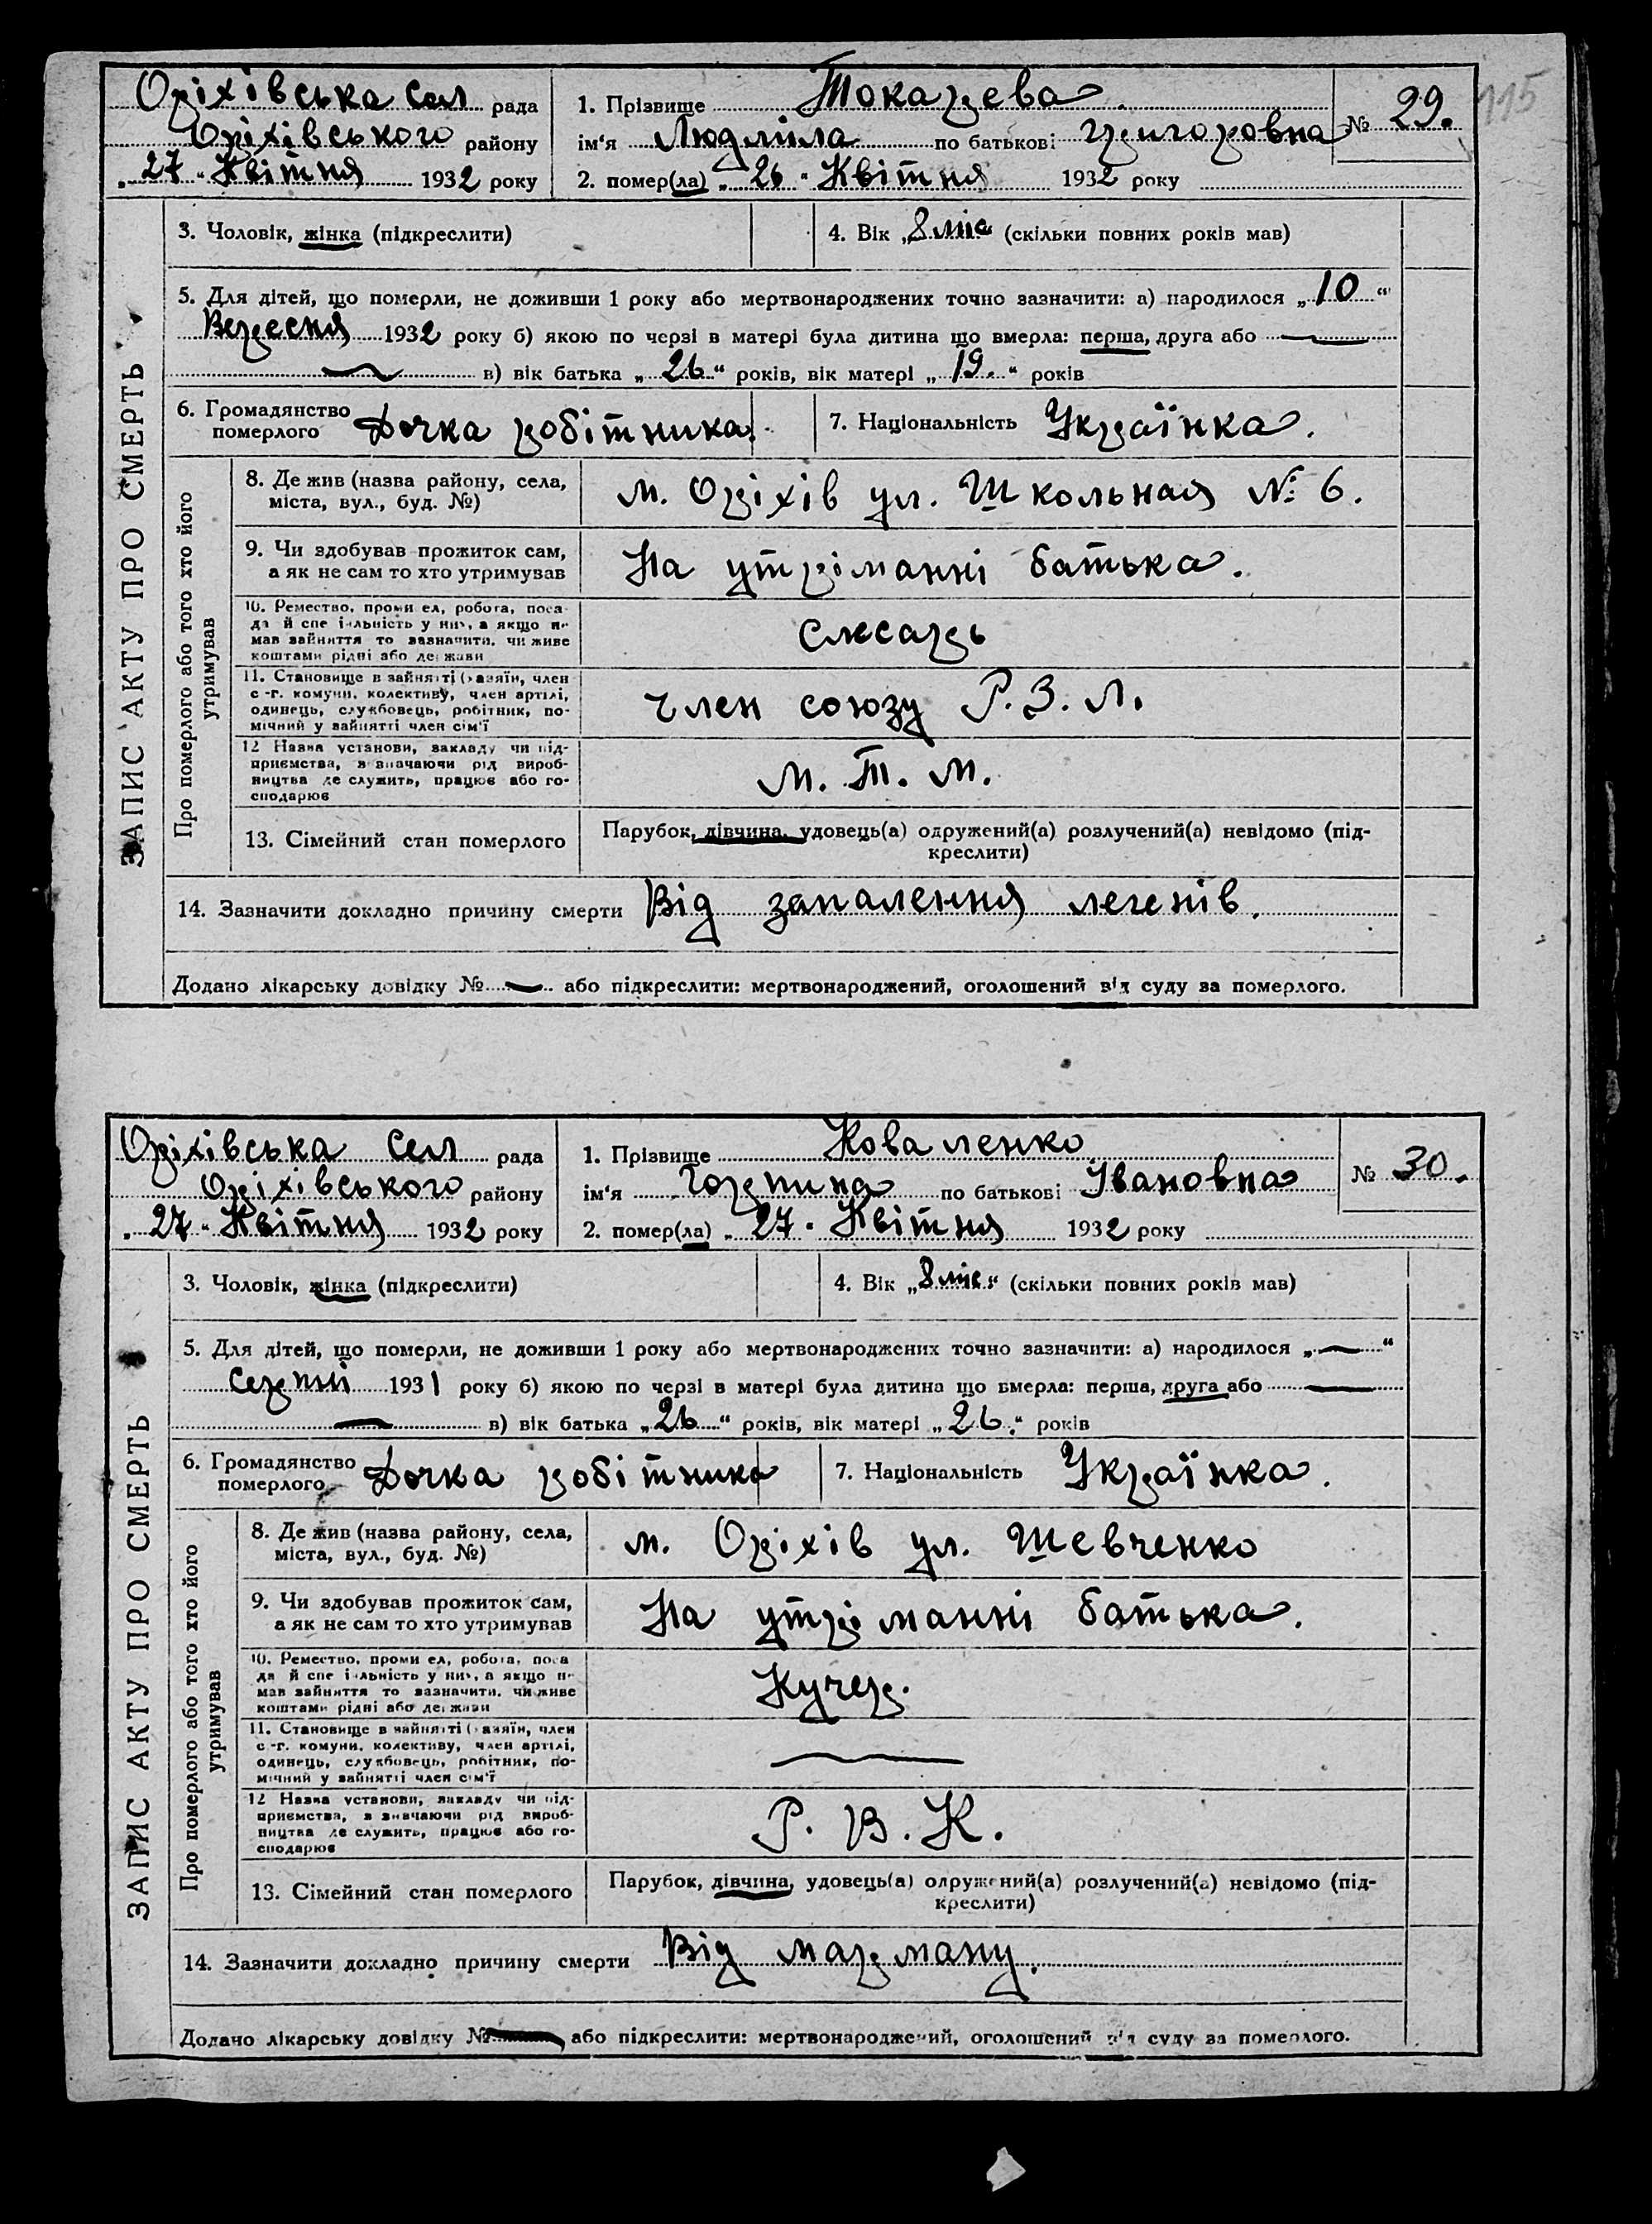 115
Оріхівська сел рада
Оріхівського району
„27“ Квітня 1932 року
1. Прізвище Токарева
ім'я Людміла по батькові Григоровна
2. помер(ла) „26“ Квітня 1932 року
№ 29.
ЗАПИС АКТУ ПРО СМЕРТЬ
3. Чоловік, жінка (підкреслити)
4. Вік „8 міс“ (скільки повних років мав)
5. Для дітей, що померли, не доживши 1 року або мертвонароджених точно зазначити: а) народилося „10“
Вересня 1932 року б) якою по черзі в матері була дитина що вмерла: перша, друга або —
— в) вік батька „26“ років, вік матері „19.“ років
6. Громадянство
померлого Дочка робітника.
7. Національність Українка.
Про померлого або того хто його
утримував
8. Де жив (назва району, села,
міста, вул., буд. №)
м. Оріхів ул. Школьная № 6.
9. Чи здобував прожиток сам,
а як не сам то хто утримував
На утріманні батька.
10. Ремество, проми ел, робота, поса-
да й спе і-льність у них, а якщо н-
мав зайняття то зазначити, чи живе
коштами рідні або держави
Слесарь
11. Становище в зайнятті (хазяїн, член
с-г. комуни, колективу, член артілі,
одинець, службовець, робітник, по-
мічний у зайнятті член сім'ї
Член союзу Р.З.Л.
12 Назва установи, закладу чи під-
приємства, зазначаючи рід вироб-
ництва де служить, працює або го-
сподарює
М. Т. М.
13. Сімейний стан померлого
Парубок, дівчина, удовець(а) одружений(а) розлучений(а) невідомо (під-
креслити)
14. Зазначити докладно причину смерти Від запалення легенів.
Додано лікарську довідку № — або підкреслити: мертвонароджений, оголошений від суду за померлого.
Оріхівська сел рада
Оріхівського району
„27“ Квітня 1932 року
1. Прізвище Коваленко
ім'я Горпина по батькові Івановна
2. помер(ла) „27“ Квітня 1932 року
№ 30.
ЗАПИС АКТУ ПРО СМЕРТЬ
3. Чоловік, жінка (підкреслити)
4. Вік „8 міс.“ (скільки повних років мав)
5. Для дітей, що померли, не доживши 1 року або мертвонароджених точно зазначити: а) народилося „—“
Серпні 1931 року б) якою по черзі в матері була дитина що вмерла: перша, друга або —
— в) вік батька „26“ років, вік матері „26.“ років
6. Громадянство
померлого Дочка робітника
7. Національність Українка.
Про померлого або того хто його
утримував
8. Де жив (назва району, села,
міста, вул., буд. №)
м. Оріхів ул. Шевченко
9. Чи здобував прожиток сам,
а як не сам то хто утримував
На утріманні батька.
10. Ремество, проми ел, робота, поса
да й спе і-льність у них, а якщо н-
мав зайняття то зазначити, чи живе
коштами рідні або держави
Кучер.
11. Становище в зайнятті (хазяїн, член
с-г. комуни, колективу, член артілі,
одинець, службовець, робітник, по-
мічний у зайнятті член сім'ї
—
12 Назва установи, закладу чи під-
приємства, зазначаючи рід вироб-
ництва де служить, працює або го-
сподарює
Р. В. К.
13. Сімейний стан померлого
Парубок, дівчина, удовець(а) одружений(а) розлучений(а) невідомо (під-
креслити)
14. Зазначити докладно причину смерти Від маразману.
Додано лікарську довідку № — або підкреслити: мертвонароджений, оголошений від суду за померлого.